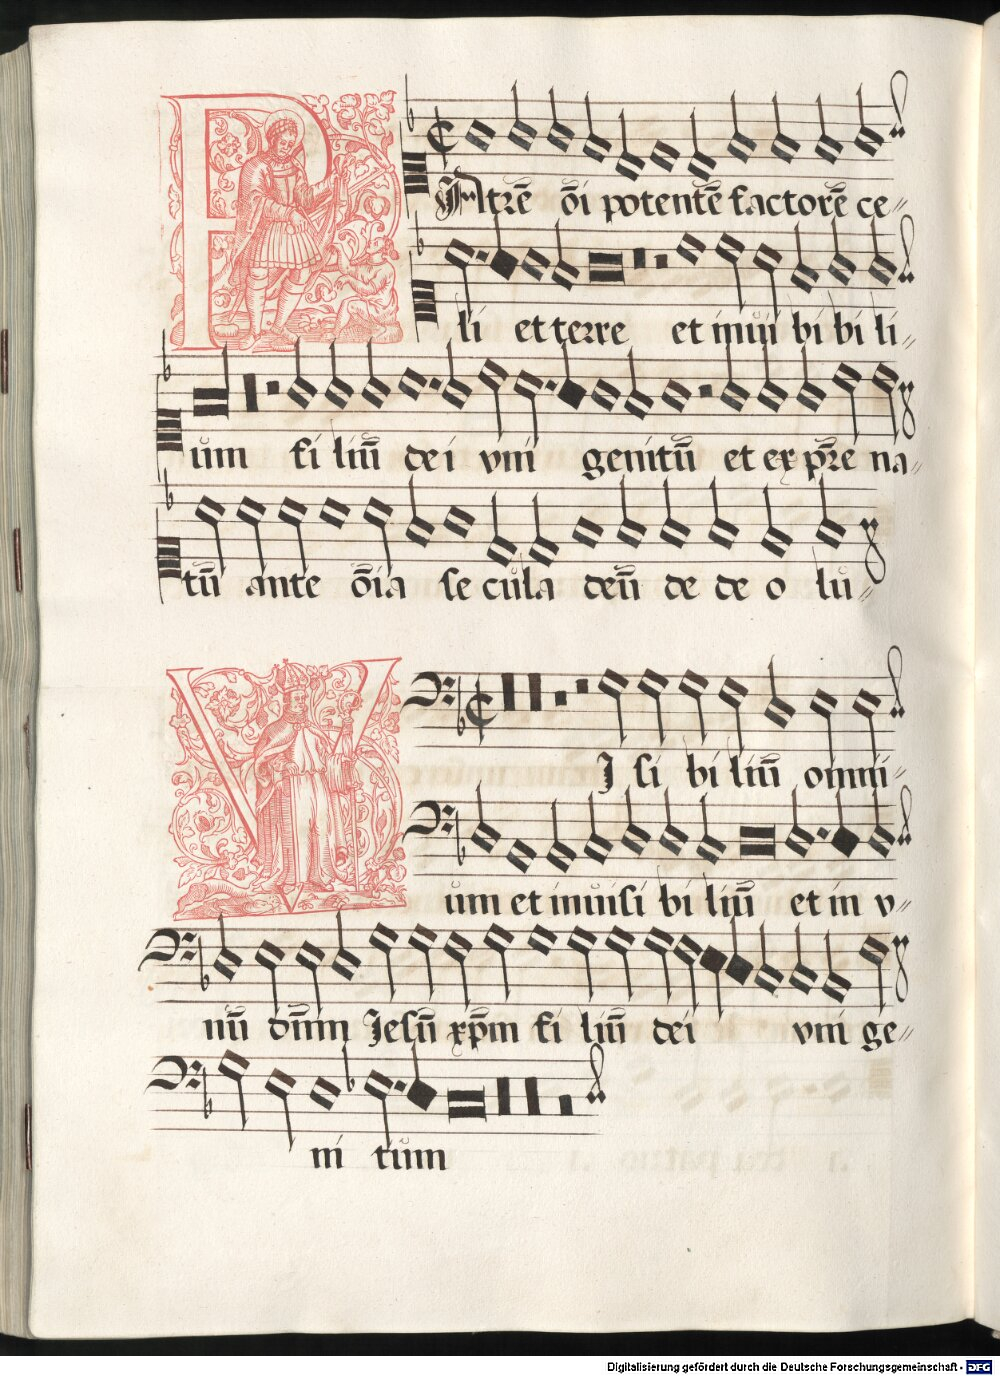 PAtrēōi potentē factorē ce〃
li et terre et inuisi bi li〃
ūm fi liū dei vni genitū et ex pr̄e na〃
tū ante ōia se cula deū de de o lu〃
VJ si bi liū omni〃
ūm et inuisi bi liū et in v〃
nū dn̄m Jesū xp̄m fi liū dei vni ge〃
ni tūm
Digitalisierung gefördert durch die Deutsche Forschungsgemeinschaft - DFG